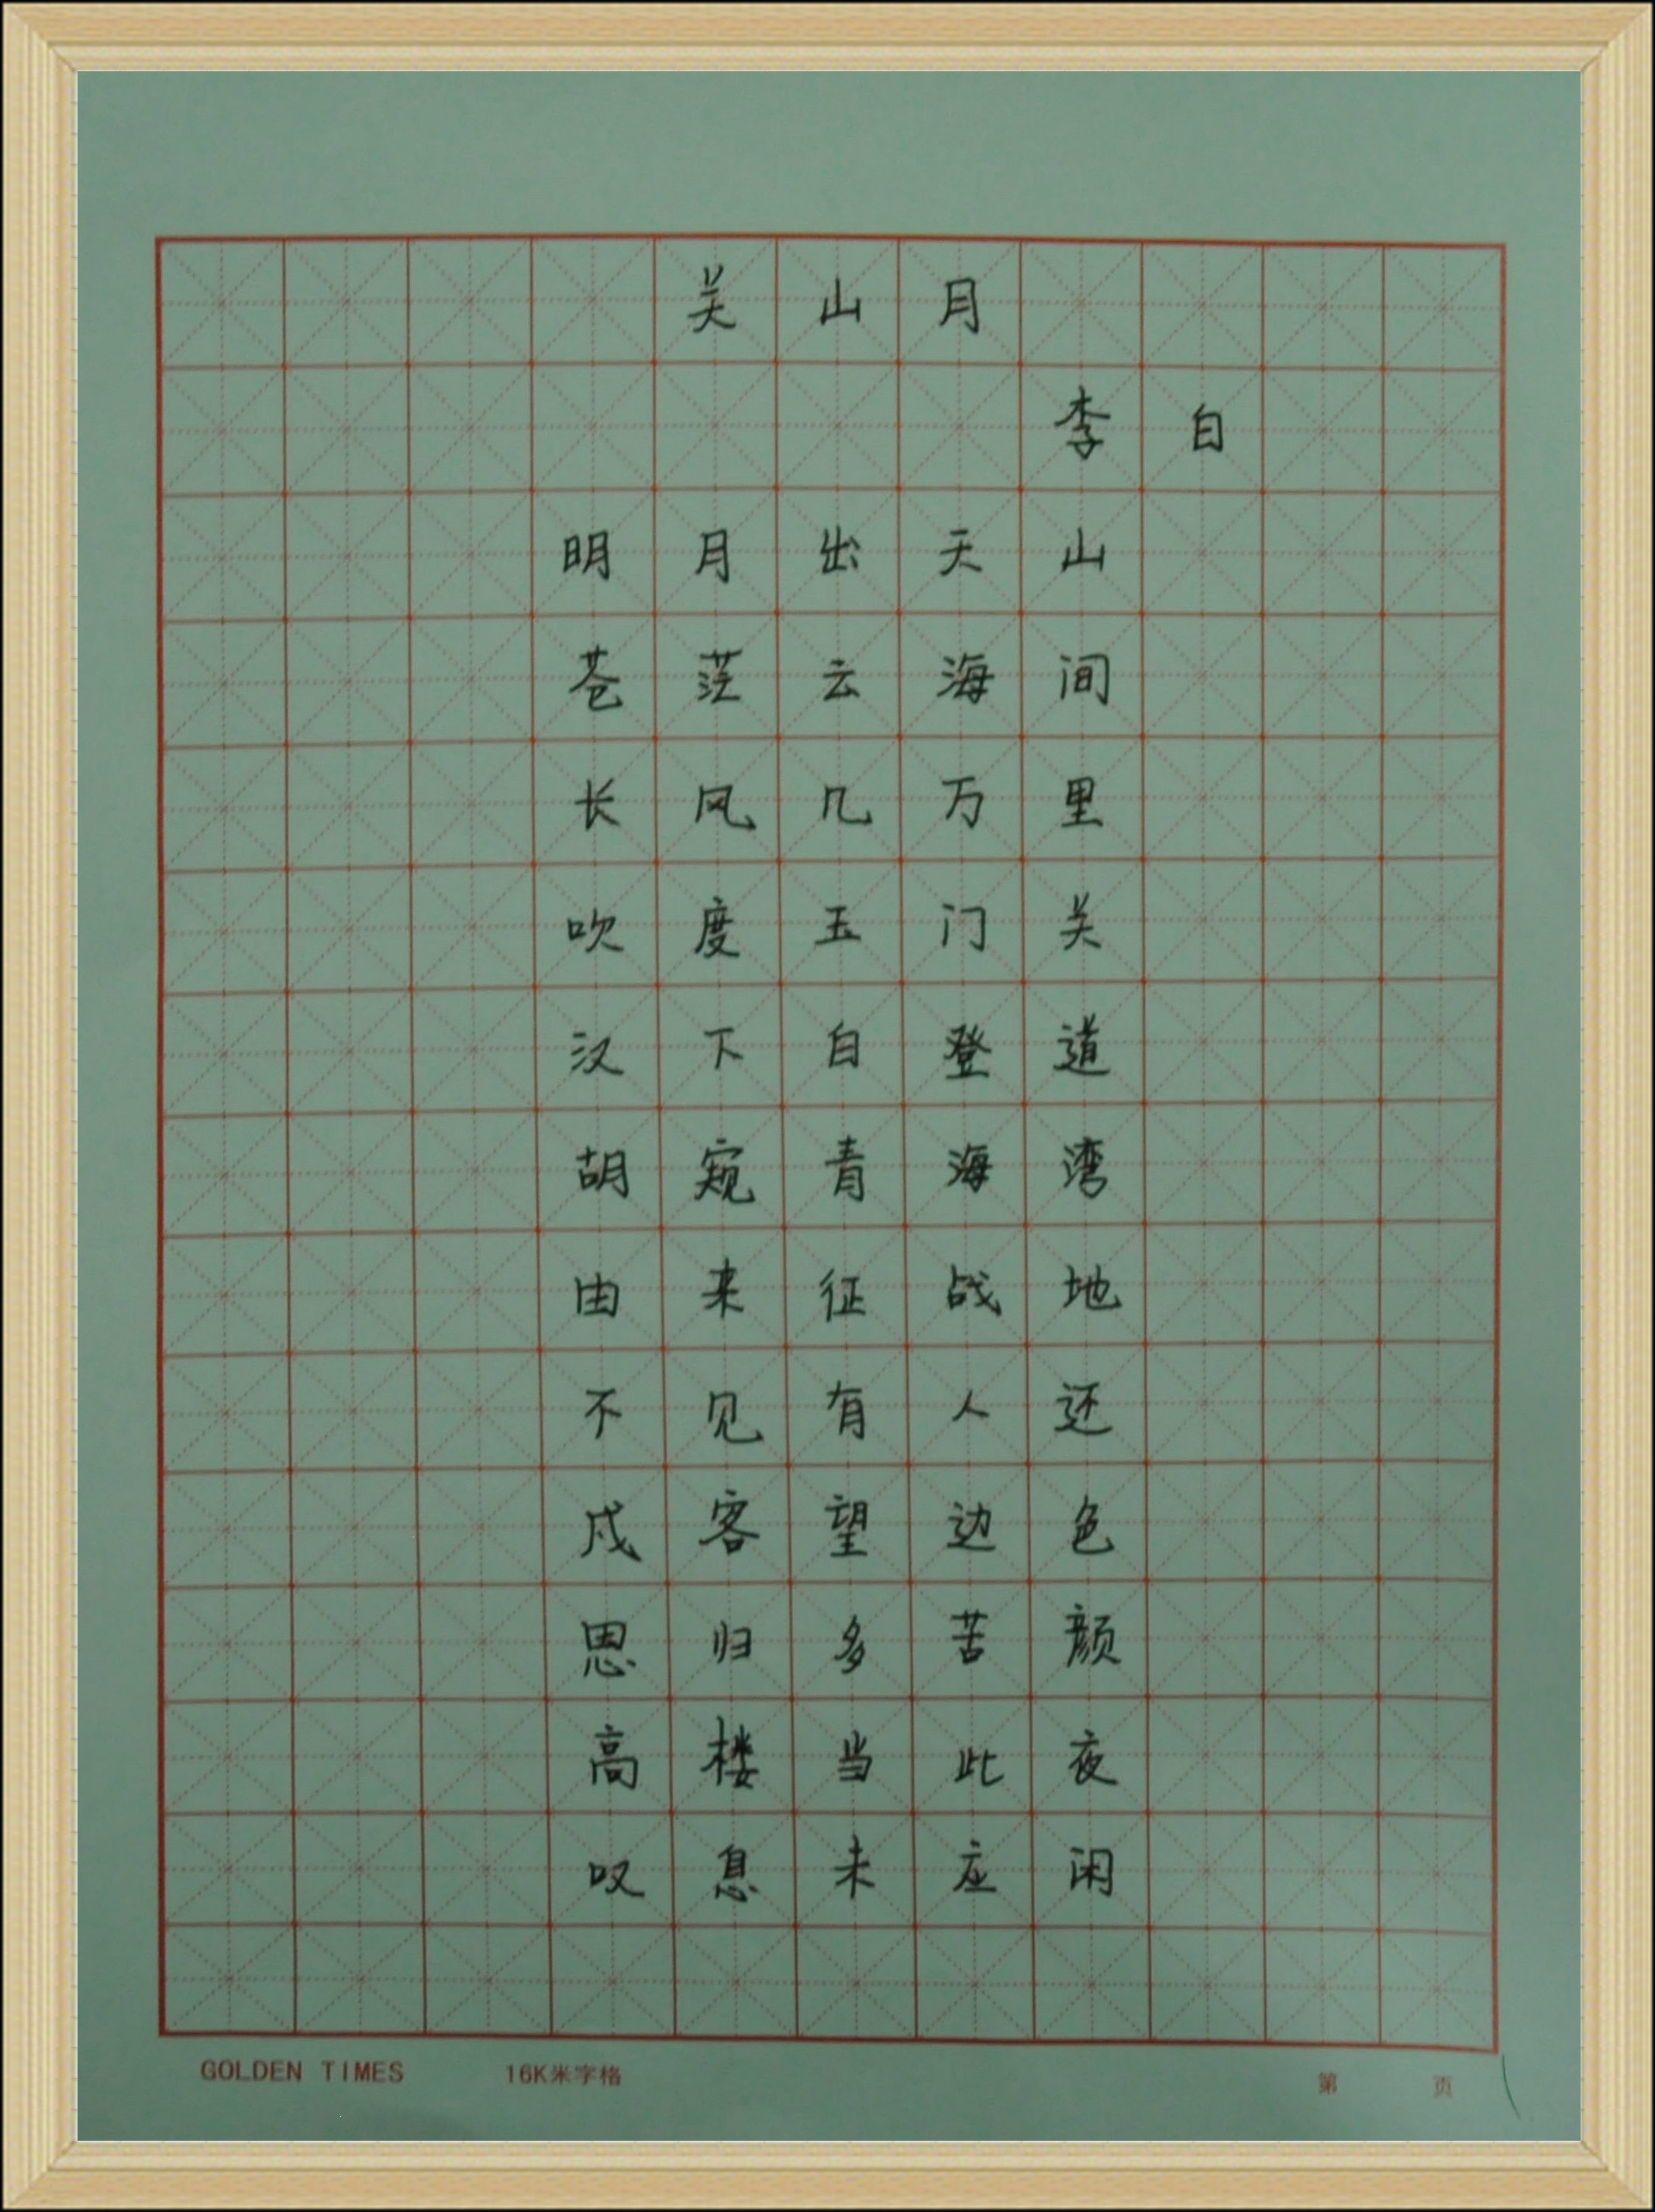 关山月
李白
明月出天山
苍茫云海间
长风几万里
吹度玉门关
汉下白登道
胡窥青海湾
由来征战地
不见有人还
戍客望边色
思归多苦颜
高楼当此夜
叹息未应闲
GOLDEN TIMES 16K米字格 第 页